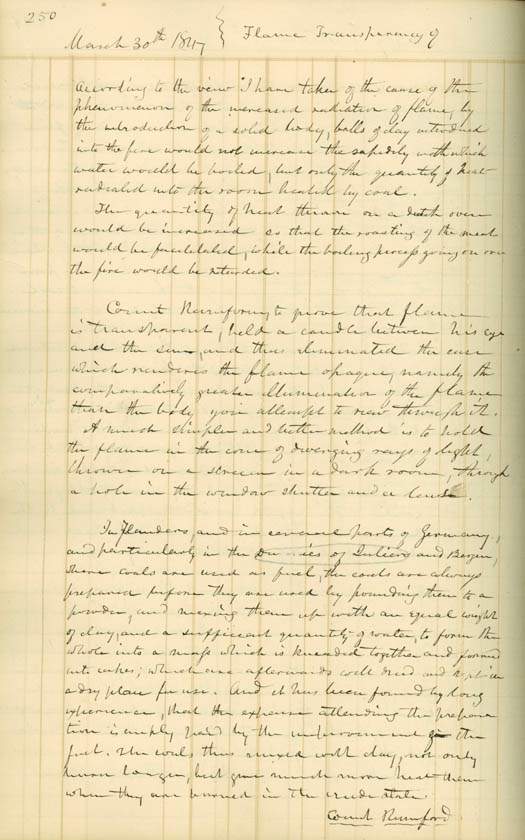 250
March 30th 1847 { Flame Transparency of
According to the view I have taken of the cause of the
phenomenon of the increased radiation of flame, by
the introduction of a solid body, balls of clay introduced
into the fire would not increase the rapidity with which
water would be boiled, but only the quantity of heat
radiated into the room heated by coal.
The quantity of heat thrown on a dutch oven
would be increased so that the roasting of the meat
would be facilitated, while the boiling process going on over
the fire would be retarded.
Count Rumford, to prove that flame
is transparent, held a candle between his eye
and the sun, and thus eliminated the cause
which renderes the flame opaque, namely the
comparatively greater illumination of the flame
than the body you attempt to view through it.
A much simpler and better method is to hold
the flame in the cone of diverging rays of light,
thrown on a screen in a dark room, through
a hole in the window shutter and a lens.
In Flanders, and in several parts of Germany,
and particularly in the Duchies of Juliers and Bergen,
where coals are used as fuel, the coals are always
prepared before they are used by pounding them to a
powder, and mixing them up with an equal weight
of clay, and a sufficient quantity of water, to form the
whole into a mass which is kneaded together and formed
into cakes; which are afterwards well dried and kept in
a dry place for use. And it has been found by long
experience, that the expense attending the prepara
tion is amply paid by the improvement of the
fuel. The coals thus mixed with clay, not only
burn longer, but give much more heat than
when they are burned in the crude state.
Count Rumford